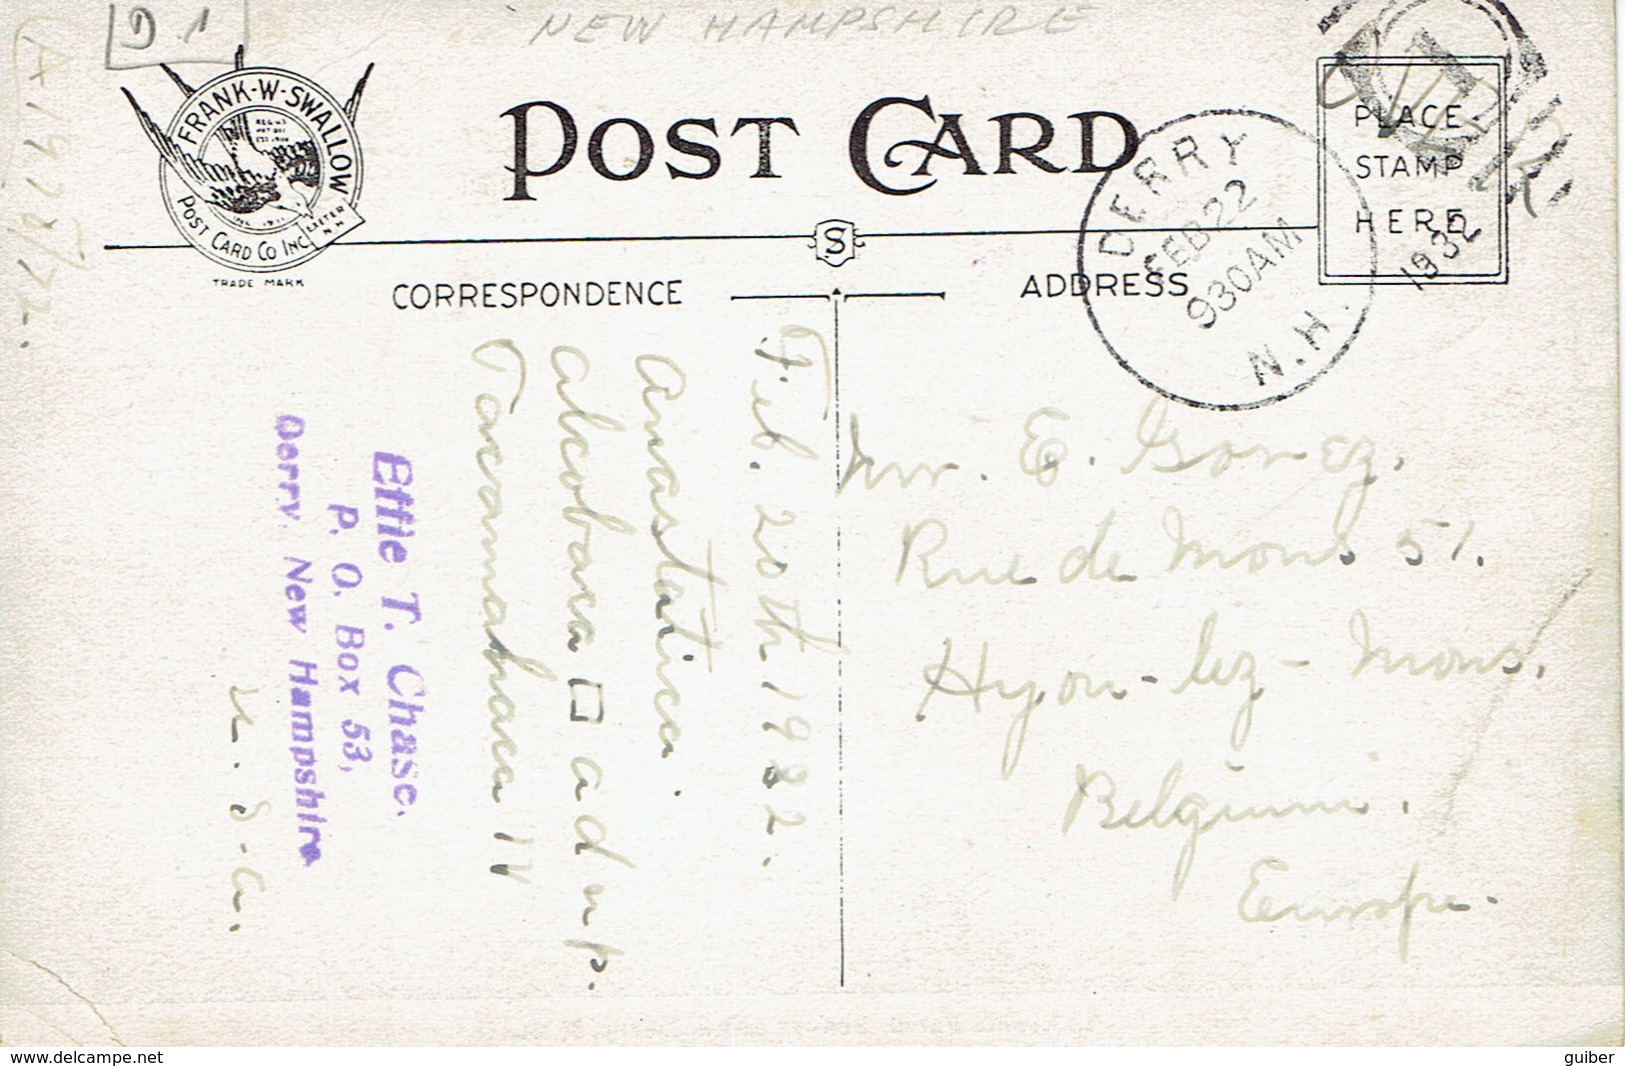 D 1
NEW HAMPSHIRE
FRANK-W-SWALLOW
POST CARD CO INC
EXETER N.H.
TRADE MARK
POST CARD
DERRY
FEB 22
930 AM
N.H.
1932
PLACE
STAMP
HERE
S
CORRESPONDENCE
ADDRESS
Feb. 20th 1932.
Anastatica.
alcobaca □ a d m p.
Effie T. Chase.
P. O. Box 53,
Derry, New Hampshire
U. S. A.
E. Gomez.
Rue de Mons 51.
Hyon-lez-Mons.
Belgium.
Europe.
www.delcampe.net
guiber